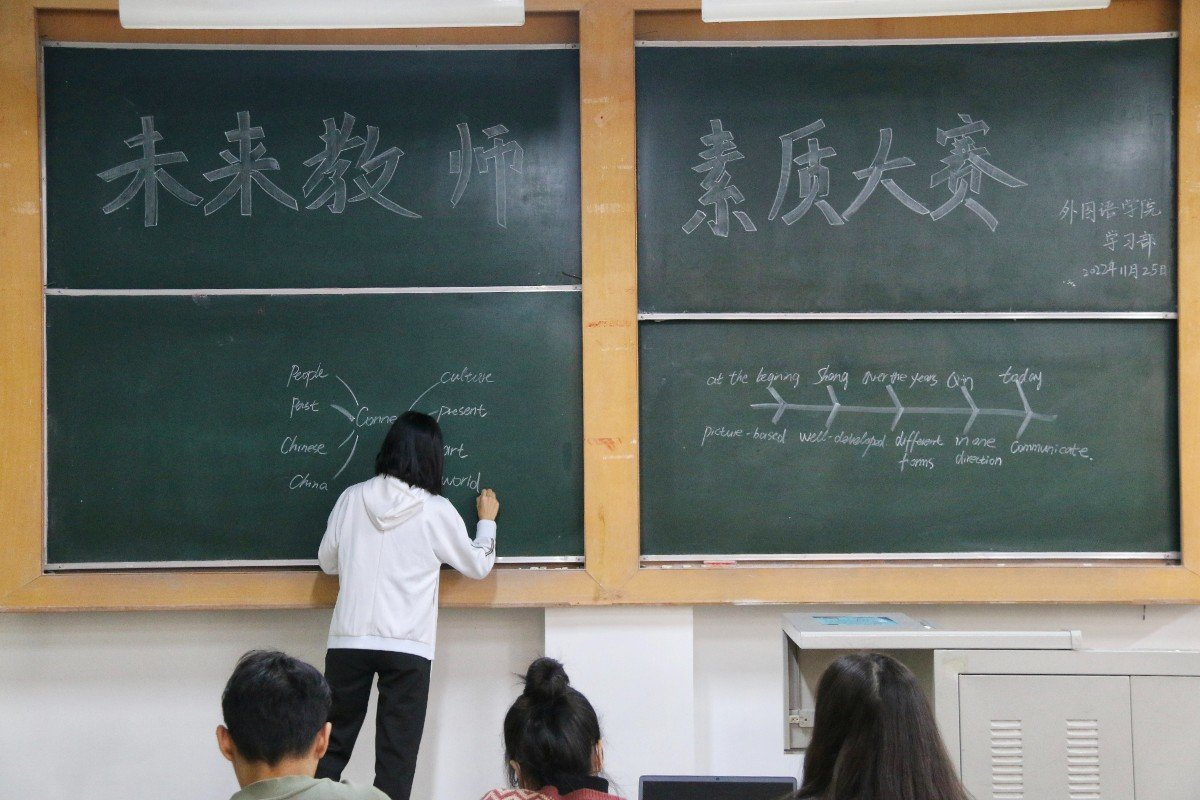 未来教师
素质大赛
外国语学院
学习部
2022年11月25日
People
culture
Past
Conne
present
Chinese
art
China
world
at the begining Shang over the years Qin today
picture-based well-developed different in one Communicate.
forms direction